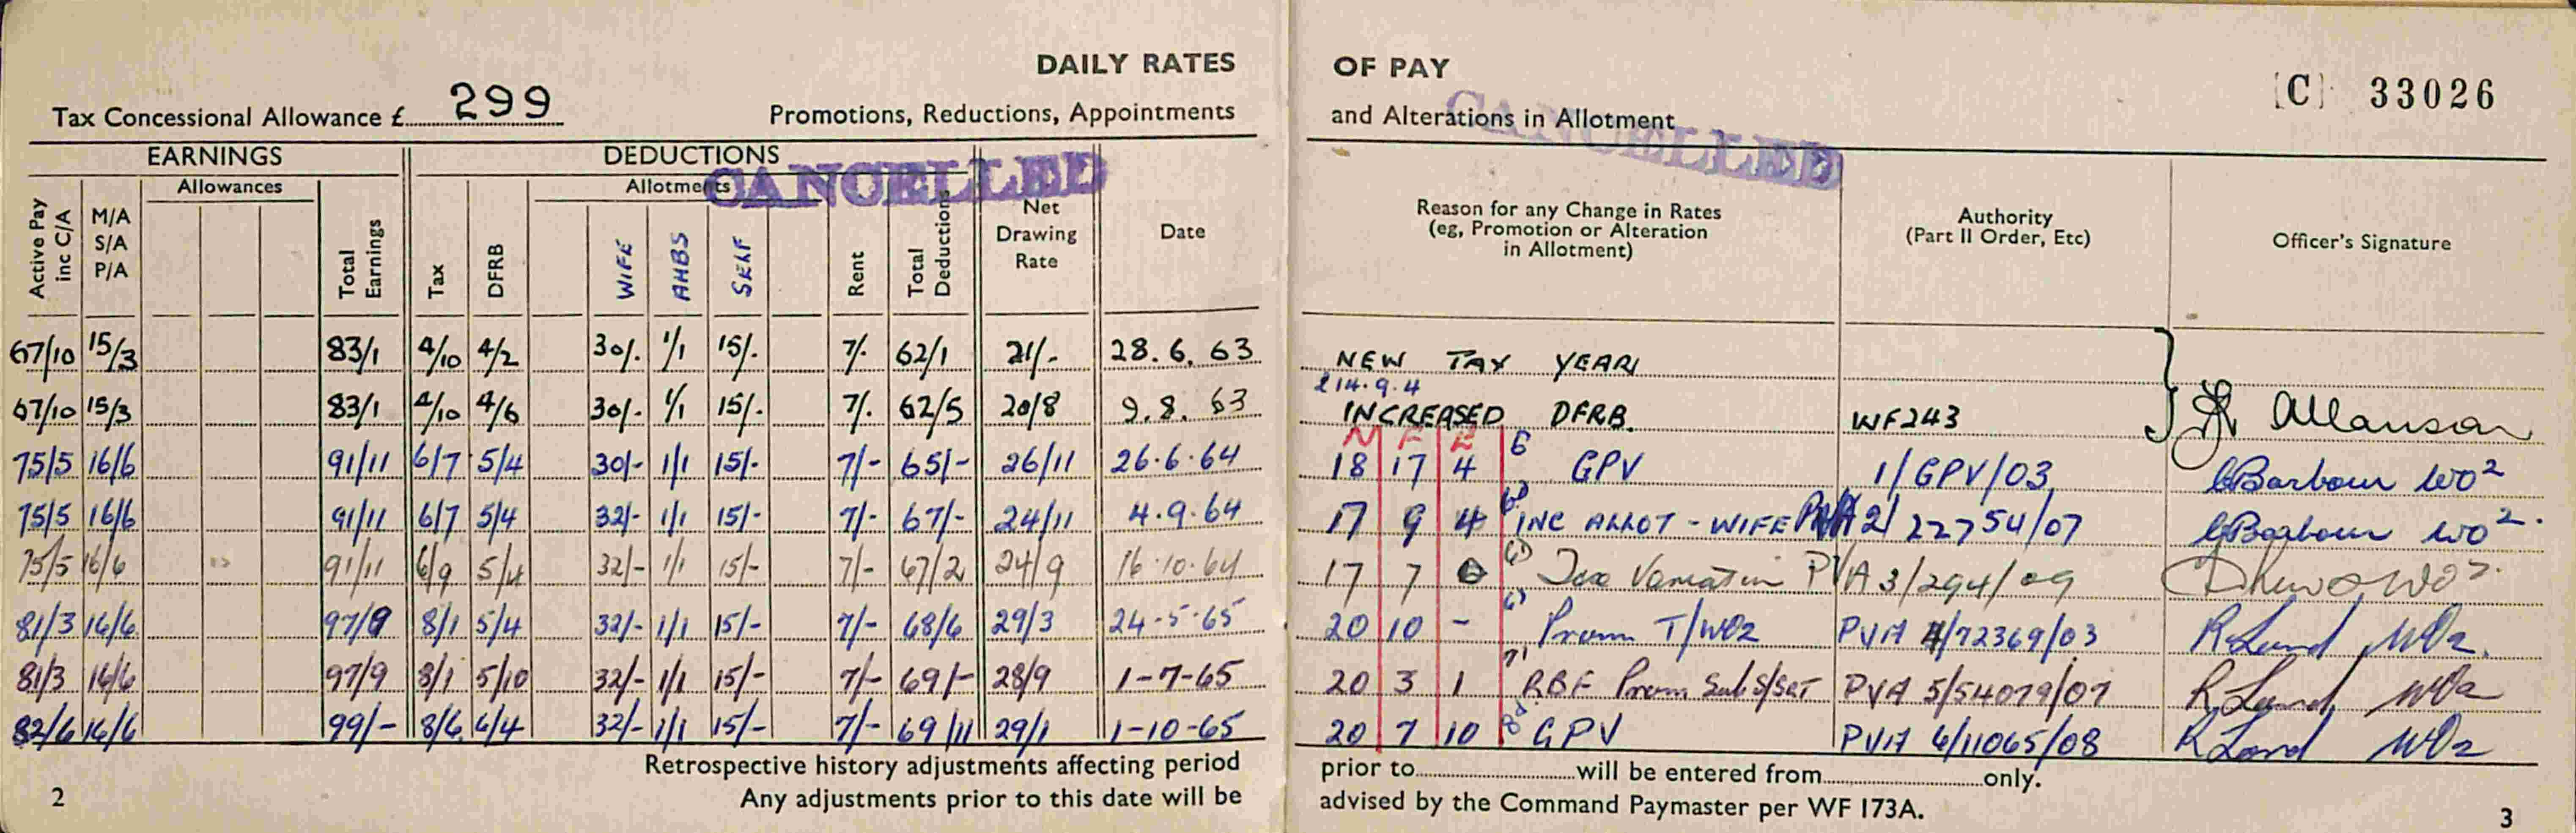 DAILY RATES OF PAY
[C] 33026
Tax Concessional Allowance £ 299 Promotions, Reductions, Appointments and Alterations in Allotment
CANCELLED CANCELLED
EARNINGS DEDUCTIONS
Allowances Allotments
Active Pay inc C/A M/A S/A P/A Total Earnings Tax DFRB WIFE AHBS SELF Rent Total Deductions Net Drawing Rate Date Reason for any Change in Rates (eg, Promotion or Alteration in Allotment) Authority (Part II Order, Etc) Officer's Signature
67/10 15/3 83/1 4/10 4/2 30/. 1/1 15/. 7/. 62/1 21/- 28.6.63 NEW TAX YEAR
£14.9.4
67/10 15/3 83/1 4/10 4/6 30/- 1/1 15/- 7/. 62/5 20/8 9.8.63 INCREASED DFRB. WF243 Allanson
75/5 16/6 91/11 6/7 5/4 30/- 1/1 15/- 7/- 65/- 26/11 26.6.64 18 17 4 GPV 1/GPV/03 Barbour WO2
75/5 16/6 91/11 6/7 5/4 32/- 1/1 15/- 7/- 67/- 24/11 4.9.64 17 9 4 INC ALLOT - WIFE PVA 2/22754/07 Barbour WO2.
75/5 16/6 91/11 6/9 5/4 32/- 1/1 15/- 7/- 67/2 24/9 16.10.64 17 7 0 Tax Variation PVA 3/294/09
81/3 16/6 97/9 8/1 5/4 32/- 1/1 15/- 7/- 68/6 29/3 24-5-65 20 10 - Prom T/WO2 PVA 4/72369/03 R Land WO2.
81/3 16/6 97/9 8/1 5/10 32/- 1/1 15/- 7/- 69/- 28/9 1-7-65 20 3 1 RBF Prom Sub S/SGT PVA 5/54079/07 R Land WO2
82/6 16/6 99/- 8/6 6/4 32/- 1/1 15/- 7/- 69/11 29/1 1-10-65 20 7 10 GPV PVA 6/11065/08 R Land WO2
Retrospective history adjustments affecting period prior to will be entered from only.
Any adjustments prior to this date will be advised by the Command Paymaster per WF 173A.
2 3